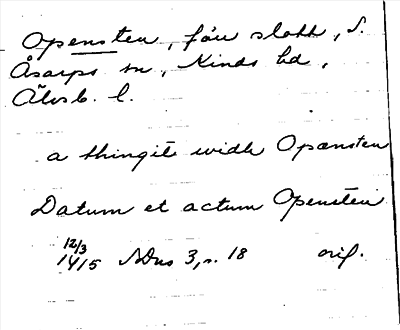 Opensten, förv slott, S.
Åsarps sn, Kinds hd,
Älvsb. l.
a thingit widh Opænsten
Datum et actum Openstein
12/3
1415 SDns 3, s. 18 orig.